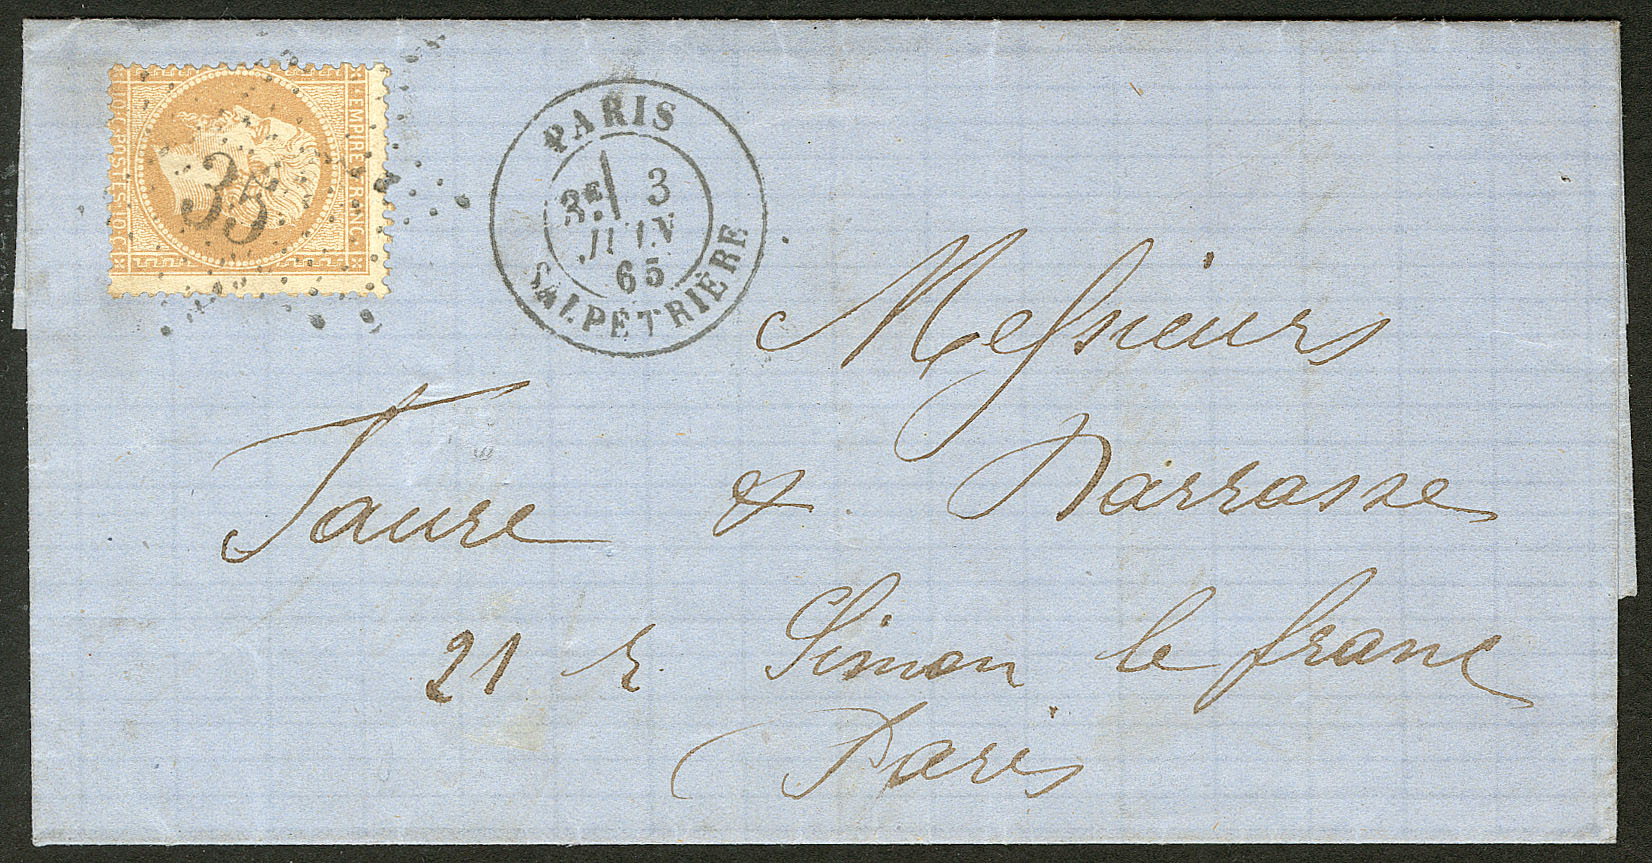 EMPIRE FRANC
10 C POSTES 10 C
35
PARIS
3E 3
JUIN
65
SALPÊTRIÈRE
Messieurs
Faure & Darrasse
21 r. Simon le franc
Paris